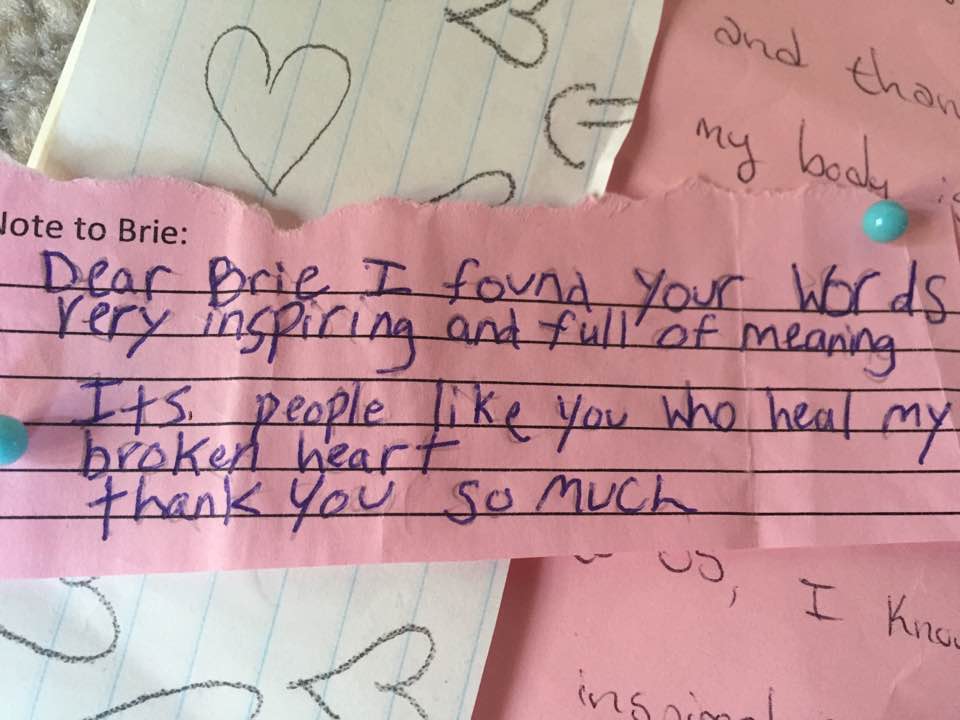 and than
my body
Note to Brie:
Dear Brie I found your words
very inspiring and full of meaning
Its people like you who heal my
broken heart
thank you so much
us, I know